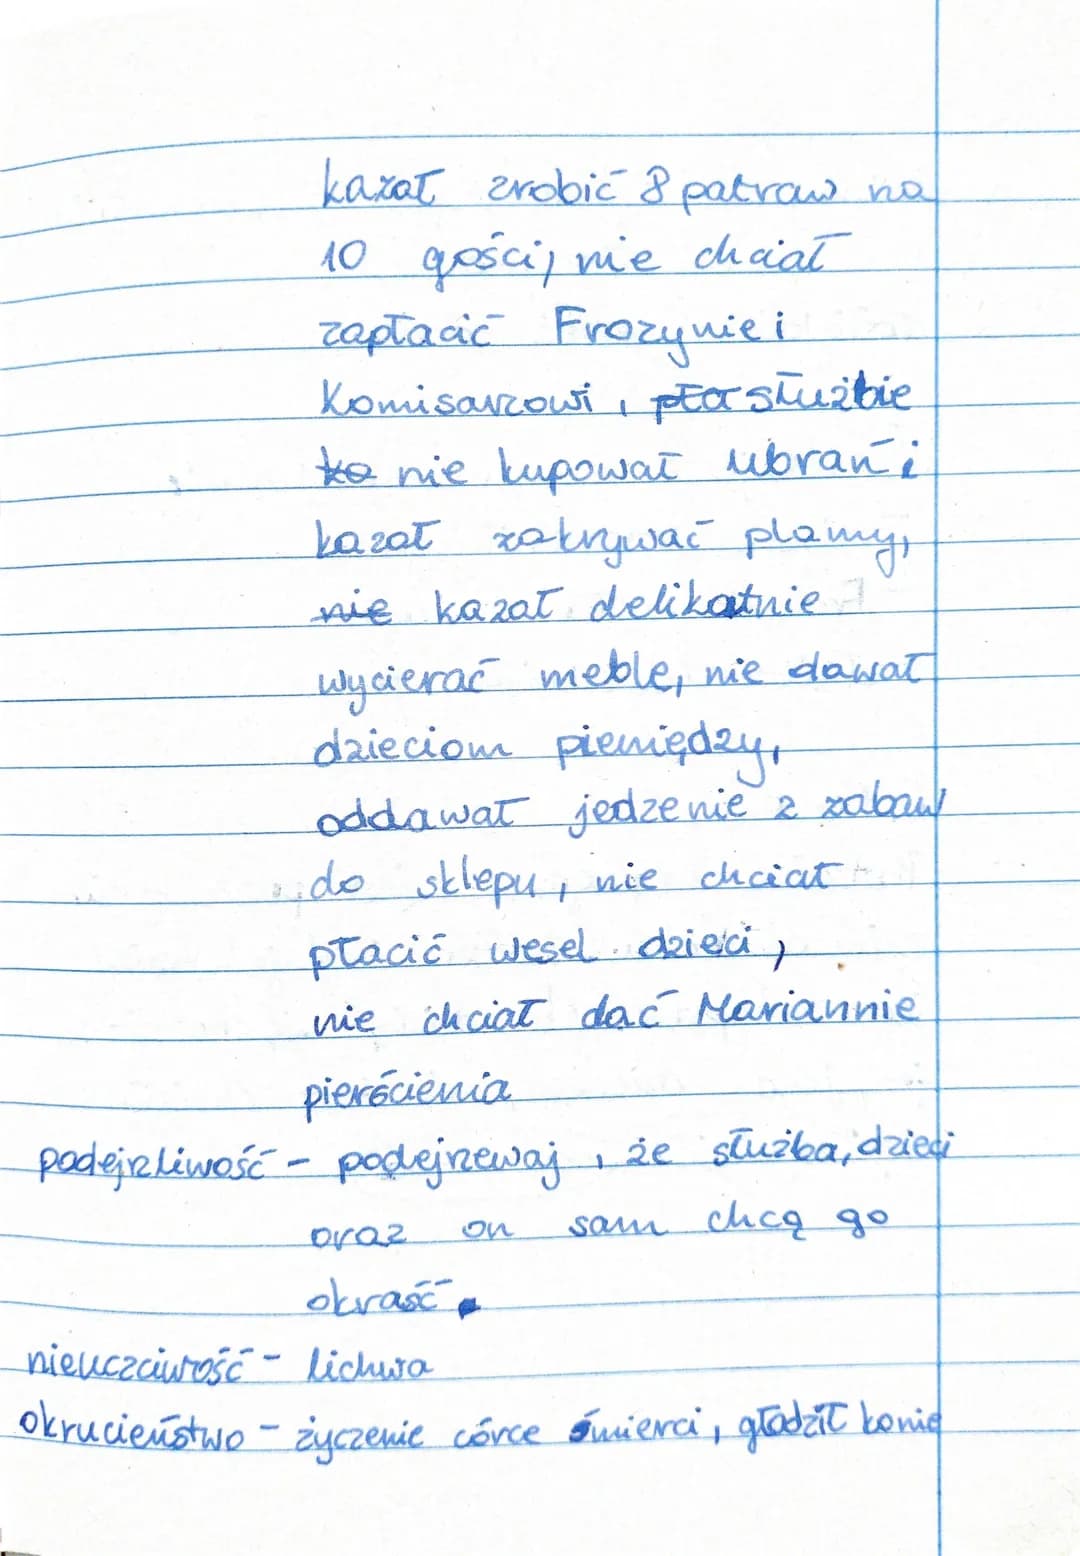 kazał zrobić 8 patraw na
10 gości, nie chciał
zapłacić Frozynie i
Komisarzowi, pła służbie
ko nie kupował ubrań i
kazał zakrywać plamy,
nie kazał delikatnie
wycierać meble, nie dawał
dzieciom pieniędzy,
oddawał jedzenie z zabaw
do sklepu, nie chciał
płacić wesel dzieci,
nie chciał dać Mariannie
pierścienia
podejrzliwość - podejrzewaj, że służba, dzieci
oraz on sam chcą go
okraść.
nieuczciwość - lichwa
okrucieństwo - życzenie córce śmierci, głodził konie